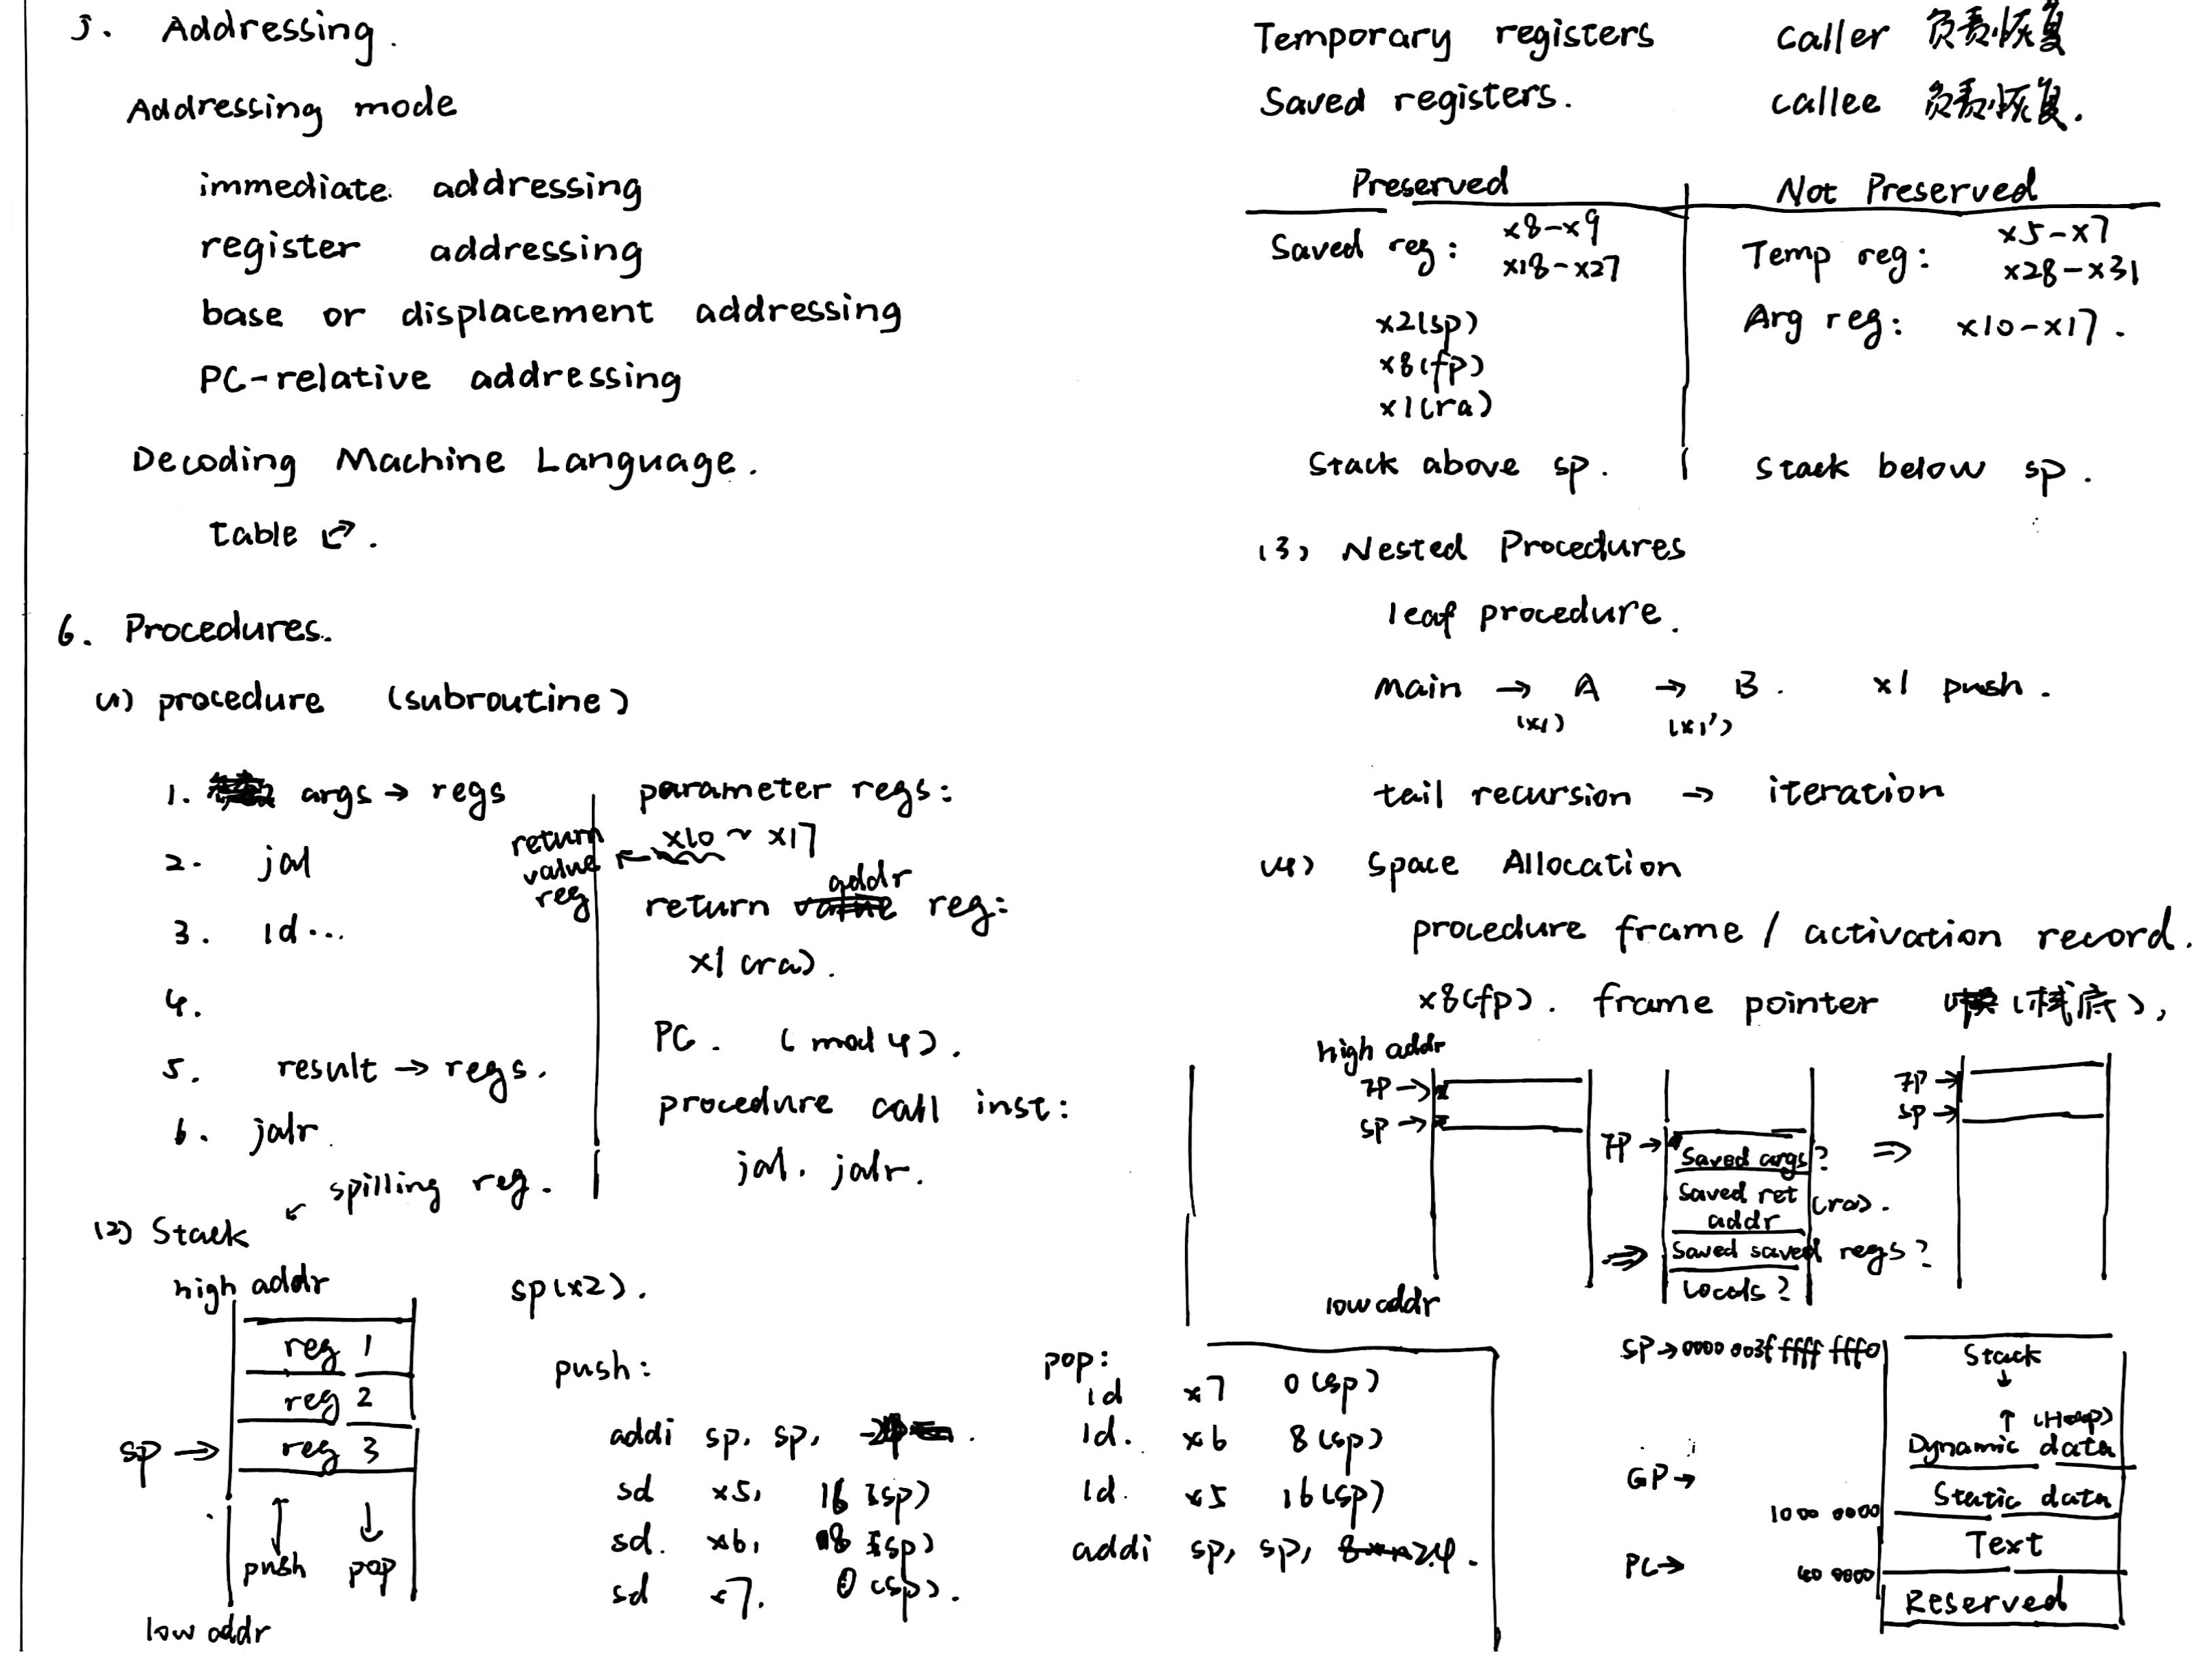 5. Addressing.
Addressing mode
immediate addressing
register addressing
base or displacement addressing
PC-relative addressing
Decoding Machine Language.
table
6. Procedures.
(1) procedure (subroutine)
1. args → regs
2. jal
3. ld...
4.
5. result → regs.
6. jalr
parameter regs:
x10 ~ x17
return value reg
return addr reg:
x1 (ra).
PC. (mod 4).
procedure call inst:
jal. jalr.
spilling reg.
(2) Stack
high addr
reg 1
reg 2
sp → reg 3
push pop
low addr
sp(x2).
push:
addi sp, sp,
sd x5, 16(sp)
sd. x6, 8(sp)
sd x7. 0(sp).
pop:
ld x7 0(sp)
ld. x6 8(sp)
ld. x5 16(sp)
addi sp, sp, 24.
Temporary registers caller 负责恢复
Saved registers. callee 负责恢复.
Preserved Not Preserved
Saved reg: x8-x9 x18-x27
Temp reg: x5-x7 x28-x31
x2(sp)
Arg reg: x10-x17.
x8(fp)
x1(ra)
Stack above sp. Stack below sp.
(3) Nested Procedures
leaf procedure.
main → A → B. x1 push.
(x1) (x1')
tail recursion → iteration
(4) Space Allocation
procedure frame / activation record.
x8(fp). frame pointer (栈底),
high addr
FP →
SP →
low addr
FP →
Saved args?
Saved ret addr (ra).
Saved saved regs?
Locals?
FP →
SP →
SP → 0000 003f ffff fff0
Stack
↓
↑ (Heap)
Dynamic data
GP →
Static data
1000 0000
Text
PC →
40 0000
Reserved